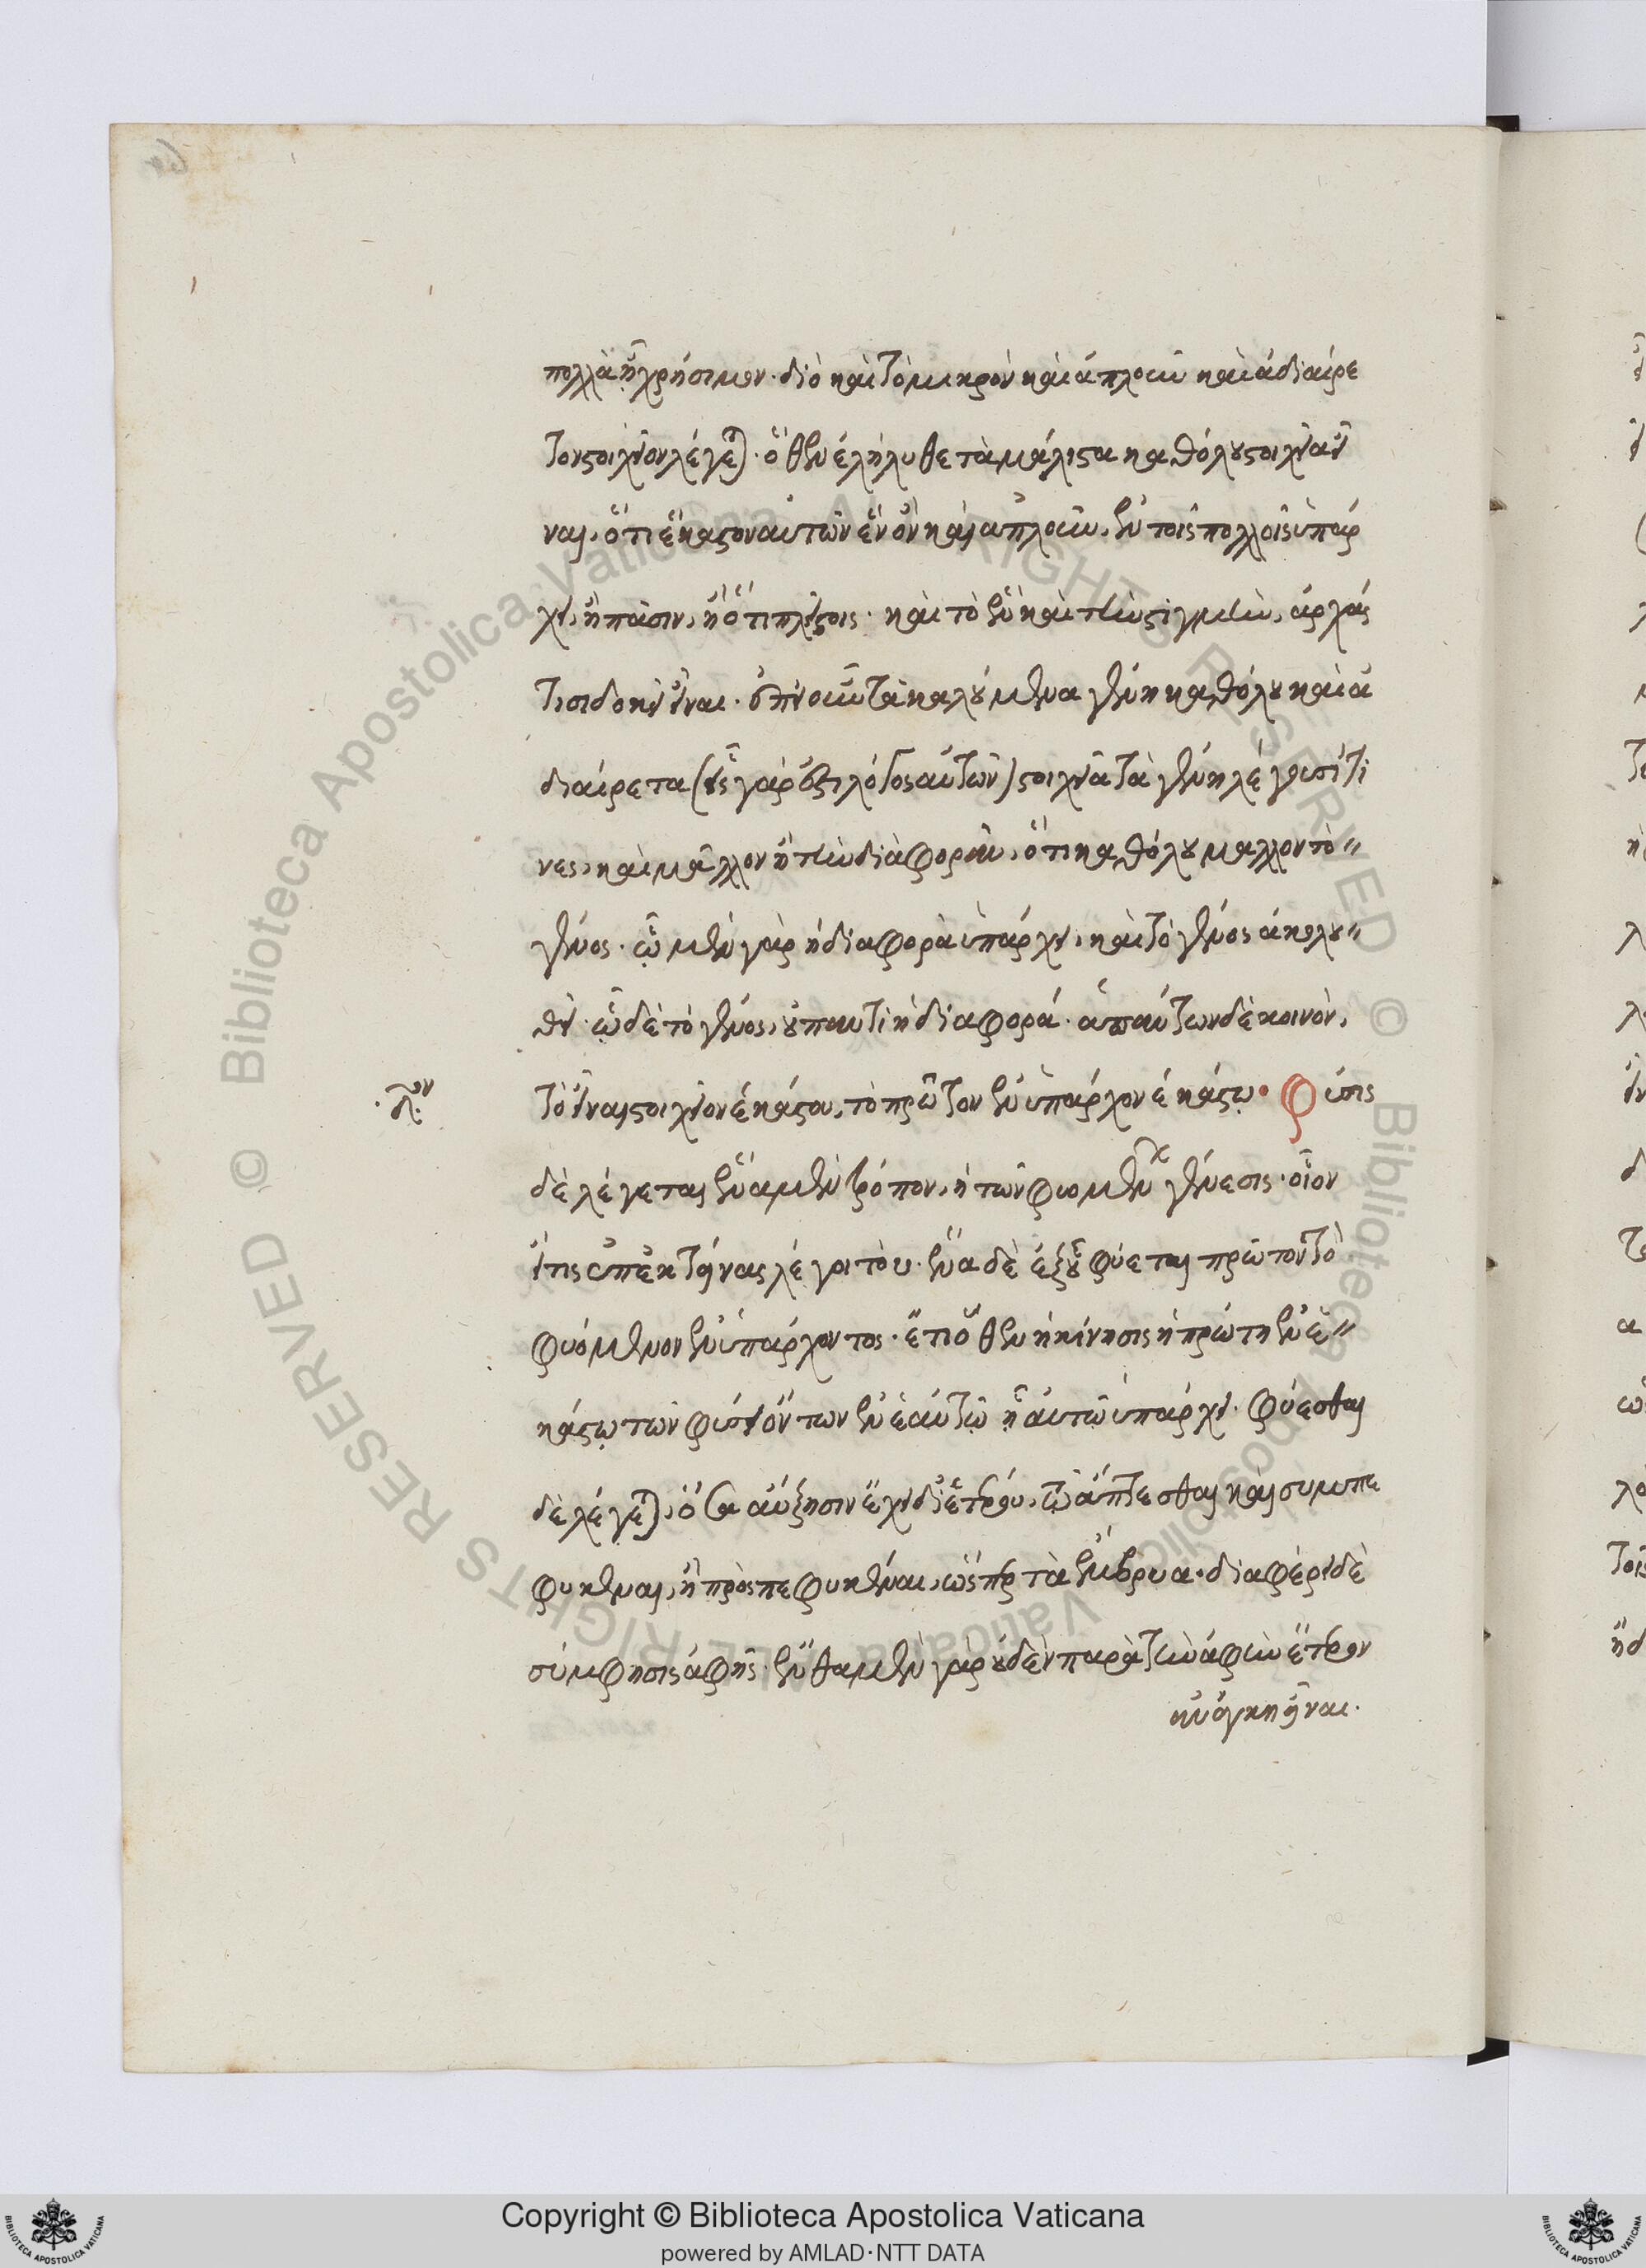 πολλὰ ᾖ χρήσιμον· διὸ καὶ τὸ μικρὸν καὶ ἁπλοῦν καὶ ἀδιαίρε
τον στοιχεῖον λέγεται· ὅθεν ἐλήλυθε τὰ μάλιστα καθόλου στοιχεῖα εἶ
ναι, ὅτι ἕκαστον αὐτῶν ἓν ὂν καὶ ἁπλοῦν, ἐν τοῖς πολλοῖς ὑπάρ
χει, ἢ πᾶσιν, ἢ ὅτι πλείστοις· καὶ τὸ ἓν καὶ τὴν στιγμὴν, ἀρχάς
τισι δοκεῖν εἶναι· ἐπεὶ οὖν τὰ καλούμενα γένη καθόλου καὶ ἀ
διαίρετα (εἷς γάρ ἐστι λόγος αὐτῶν) στοιχεῖα τὰ γένη λέγουσί τι
νες, καὶ μᾶλλον ἢ τὴν διαφορὰν, ὅτι καθόλου μᾶλλον τὸ
γένος· ᾧ μὲν γὰρ ἡ διαφορὰ ὑπάρχει, καὶ τὸ γένος ἀκολου
θεῖ· ᾧ δὲ τὸ γένος, οὐ παντὶ ἡ διαφορά· ἁπάντων δὲ κοινὸν,
τὸ εἶναι στοιχεῖον ἑκάστου, τὸ πρῶτον ἐνυπάρχον ἑκάστῳ· Φύσις
δὲ λέγεται ἕνα μὲν τρόπον, ἡ τῶν φυομένων γένεσις· οἷον
εἴ τις ἐπεκτείνας λέγοι τὸ υ· ἕνα δὲ ἐξ οὗ φύεται πρῶτον τὸ
φυόμενον ἐνυπάρχοντος· ἔτι ὅθεν ἡ κίνησις ἡ πρώτη ἐν ἑ
κάστῳ τῶν φύσει ὄντων ἐν ἑαυτῷ ᾗ αὐτῷ ὑπάρχει· φύεσθαι
δὲ λέγεται, ὅσα αὔξησιν ἔχει δι' ἑτέρου, τῷ ἅπτεσθαι καὶ συμπε
φυκέναι, ἢ προσπεφυκέναι, ὥσπερ τὰ ἔμβρυα· διαφέρει δὲ
σύμφησις ἁφῆς· ἔνθα μὲν γὰρ οὐδὲν παρὰ τὴν ἁφὴν ἕτερον
ἀνάγκη εἶναι·
Copyright © Biblioteca Apostolica Vaticana
powered by AMLAD·NTT DATA